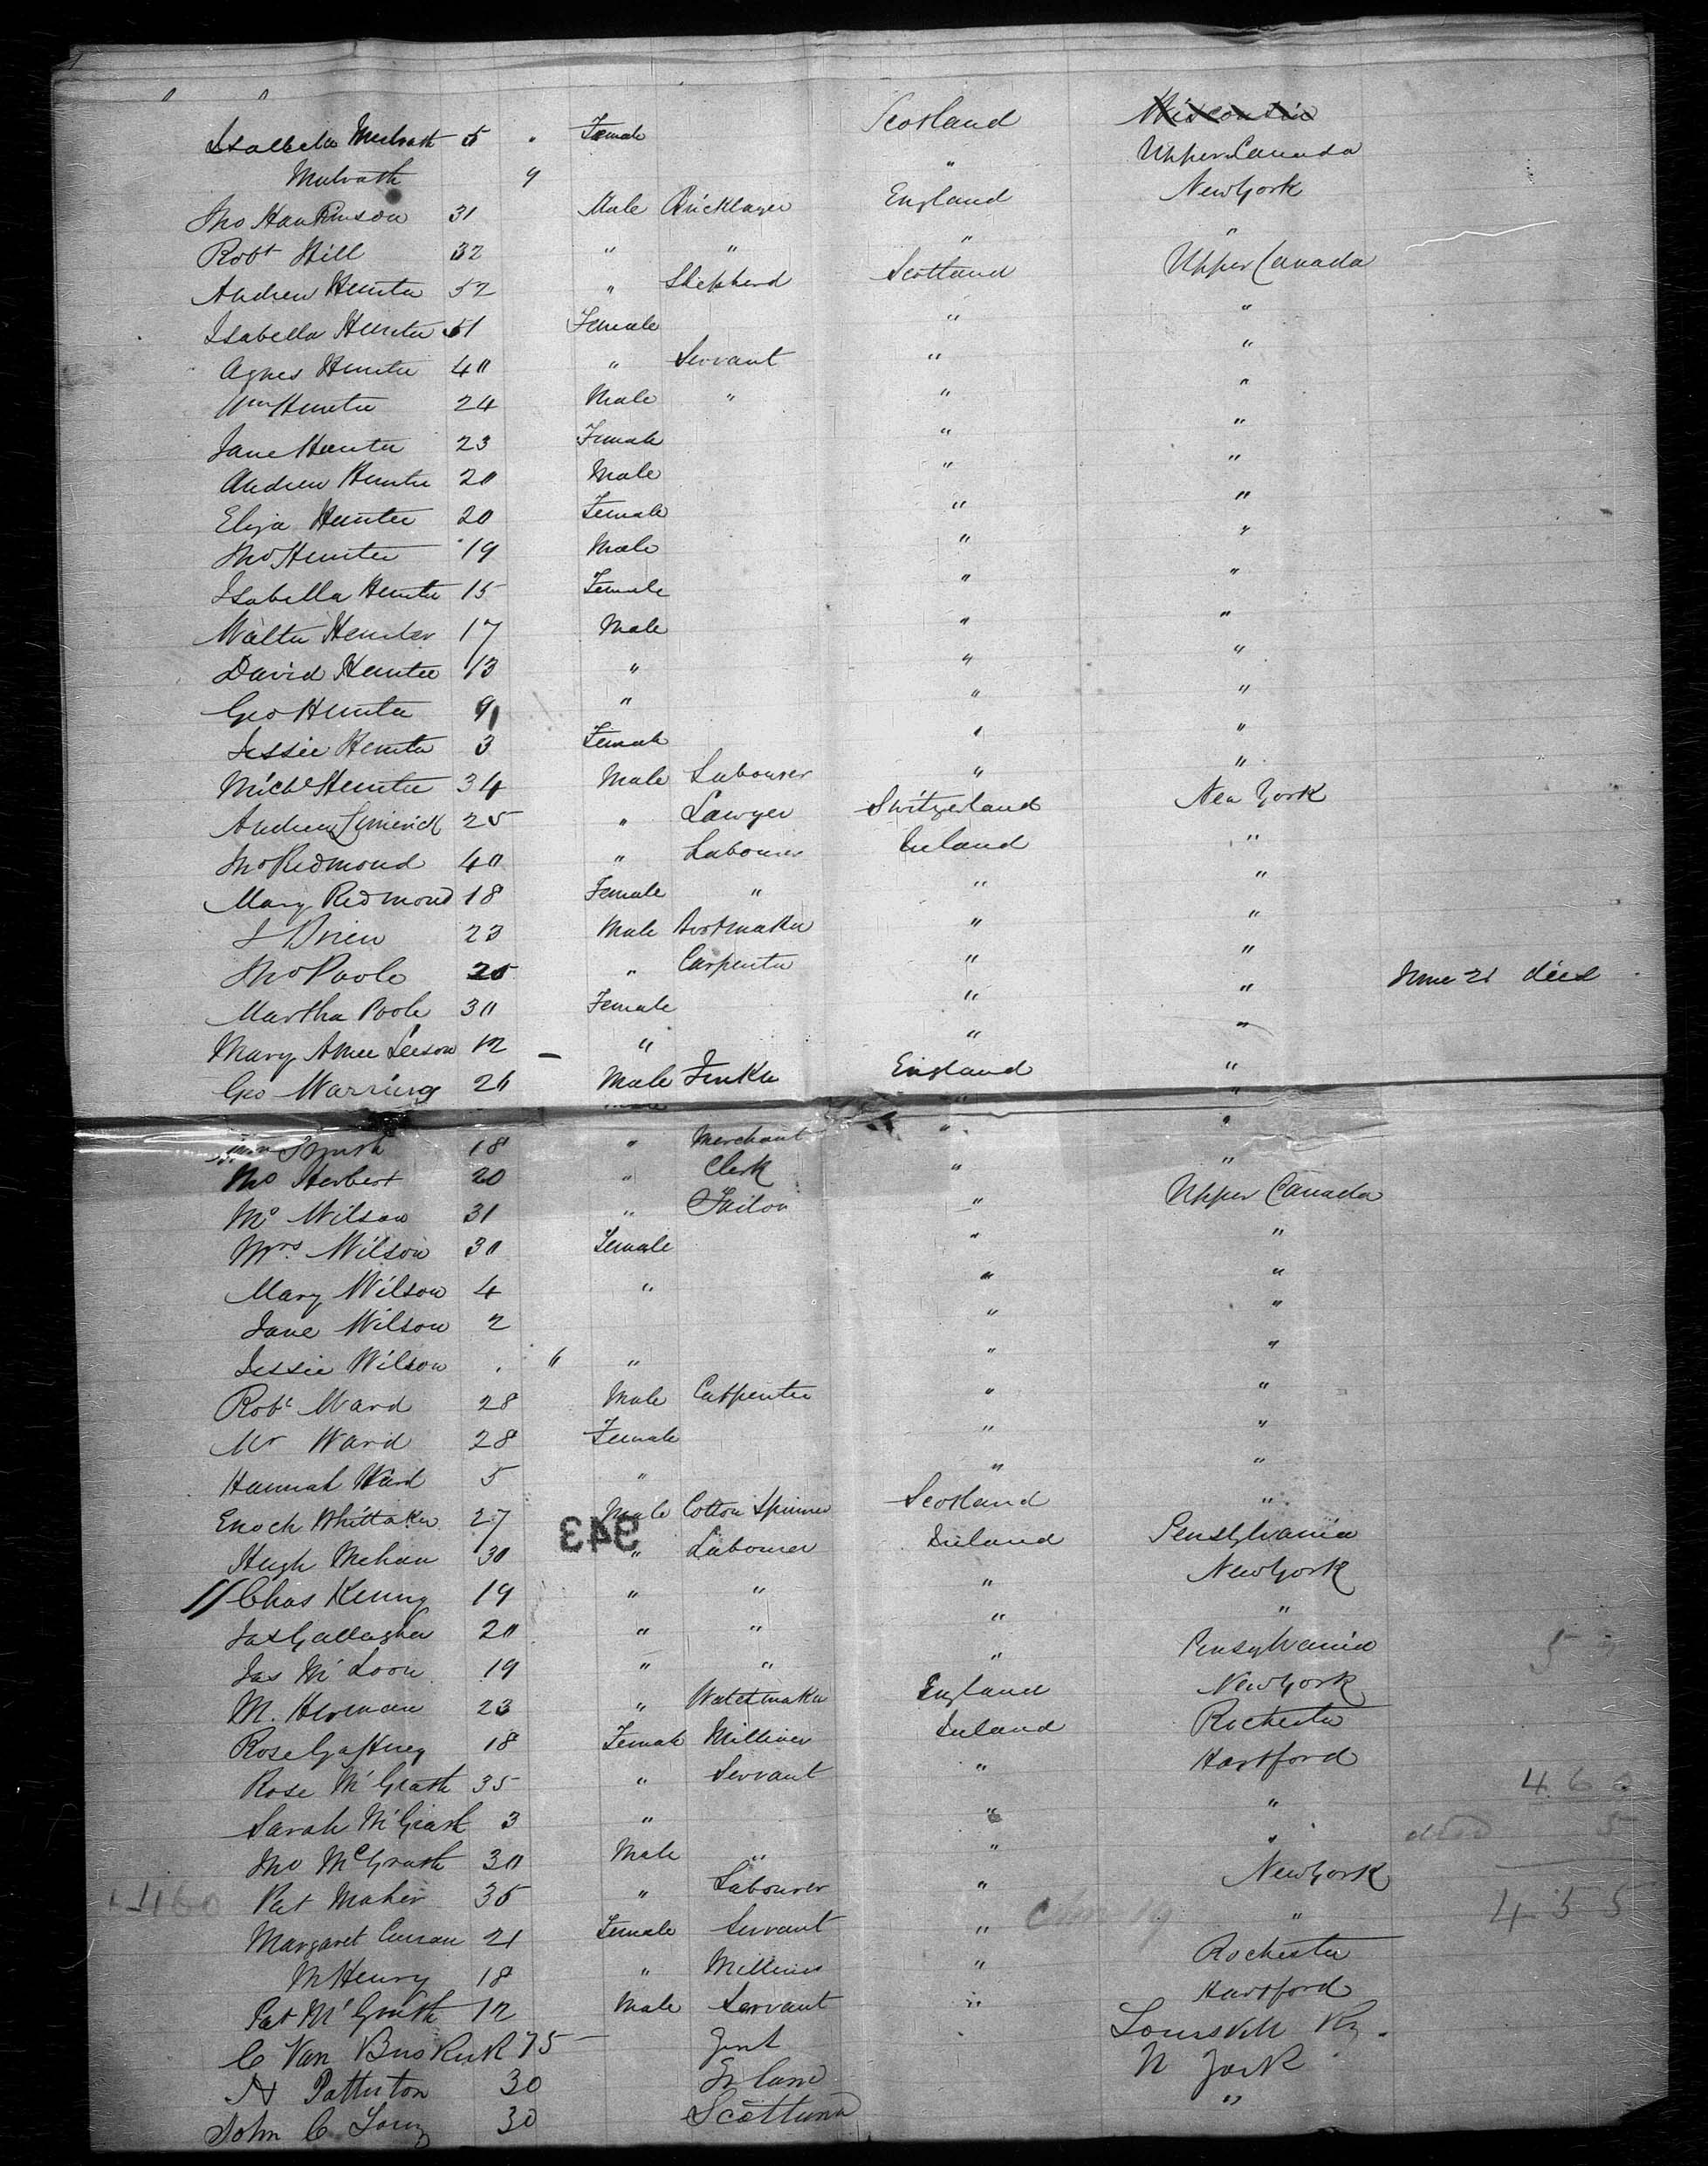 Isabella Mulrath 5 " Female Scotland Wisconsin
Mulrath 9 " Upper Canada
Jno Hankinson 31 Male Bricklayer England New York
Robt Hill 32 " " " "
Andrew Hunter 52 " Shepherd Scotland Upper Canada
Isabella Hunter 51 Female " "
Agnes Hunter 40 " Servant " "
Wm Hunter 24 Male " " "
Jane Hunter 23 Female " "
Andrew Hunter 20 Male " "
Eliza Hunter 20 Female " "
Jno Hunter 19 Male " "
Isabella Hunter 15 Female " "
Walter Hunter 17 Male " "
David Hunter 13 " " "
Geo Hunter 9 " " "
Jessie Hunter 3 Female " "
Michl Hunter 34 Male Labourer " "
Andrew Limerick 25 " Lawyer Switzerland New York
Jno Redmond 40 " Labourer Ireland "
Mary Redmond 18 Female " " "
J Brien 23 Male Bootmaker " "
Jno Poole 25 " Carpenter " "
Martha Poole 30 Female " " June 21 died
Mary Anne Leeson 12 " " "
Geo Warring 26 Male Tinker England "
18 " Merchant " "
Jno Herbert 20 " Clerk " "
Mr Wilson 31 " Tailor " Upper Canada
Mrs. Wilson 30 Female " "
Mary Wilson 4 " " "
Jane Wilson 2 " "
Jessie Wilson . 6 " " "
Robt Ward 28 Male Carpenter " "
Mr Ward 28 Female " "
Hannah Ward 5 " " "
Enoch Whittaker 27 Male Cotton Spinner Scotland "
343
Hugh Mehan 30 " Labourer Ireland Penstylvania
// Chas Kenny 19 " " " New York
Jas Gallagher 20 " " " "
Jas Mc Loon 19 " " " Pensylvania
M. Herman 23 " Watchmaker England New York
Rose Gaffney 18 Female Milliner Ireland Rochester
Rose McGrath 35 " Servant " Hartford
460
Sarah McGrath 3 " " "
died 5
Jno McGrath 30 Male " " "
Pat Maher 35 " Labourer " New York
455
Margaret Curran 21 Female Servant " "
M Henry 18 " Milliner " Rochester
Pat McGrath 12 Male Servant " Hartford
C Van Buskirk 75 Gent Louisvill Ky.
N Patterton 30 Irland N York
John C Long 30 Scottland "